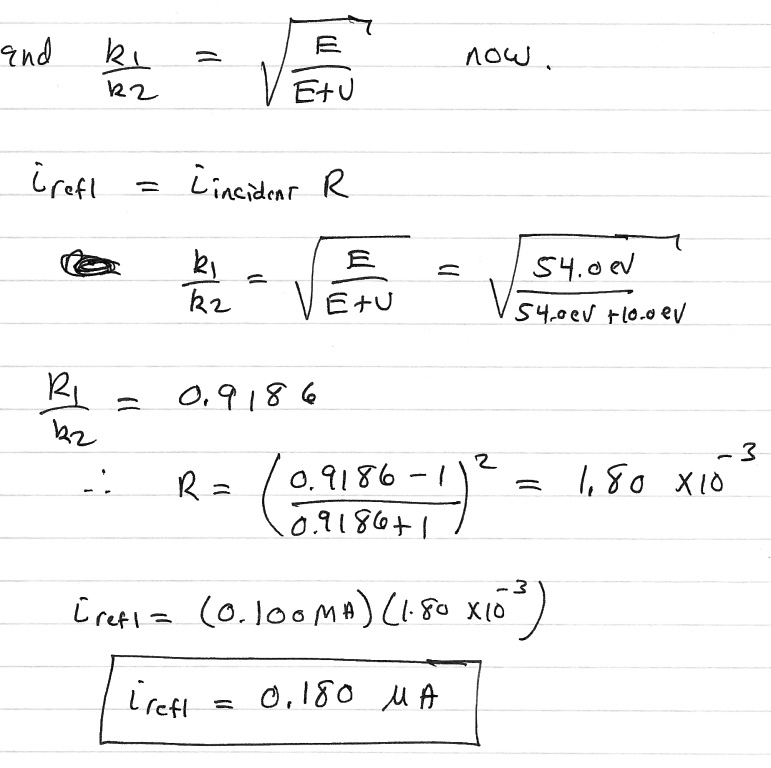 and k1/k2 = √(E/(E+U)) now.
irefl = iincident R
k1/k2 = √(E/(E+U)) = √(54.0eV/(54.0eV+10.0eV))
k1/k2 = 0.9186
∴ R = ((0.9186-1)/(0.9186+1))² = 1.80 x10⁻³
irefl = (0.100MA)(1.80 x10⁻³)
irefl = 0.180 μA